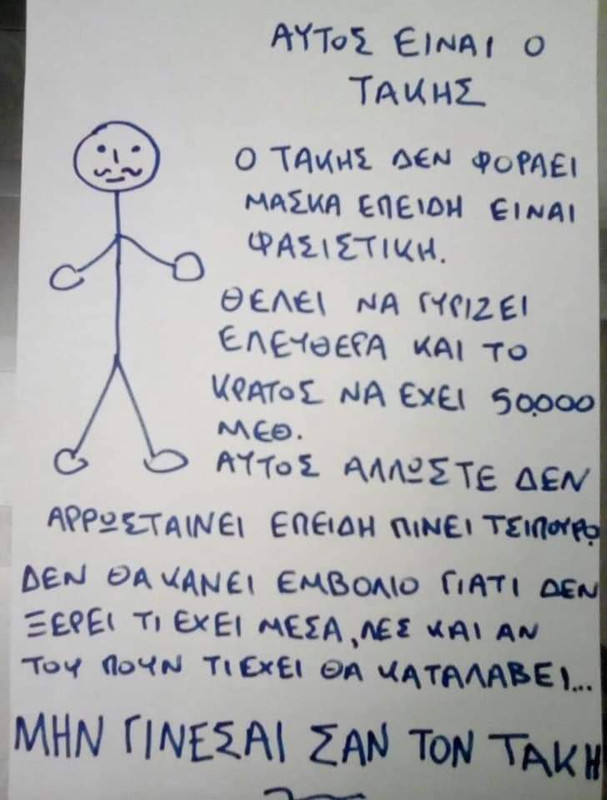 ΑΥΤΟΣ ΕΙΝΑΙ Ο
ΤΑΚΗΣ
Ο ΤΑΚΗΣ ΔΕΝ ΦΟΡΑΕΙ
ΜΑΣΚΑ ΕΠΕΙΔΗ ΕΙΝΑΙ
ΦΑΣΙΣΤΙΚΗ.
ΘΕΛΕΙ ΝΑ ΓΥΡΙΖΕΙ
ΕΛΕΥΘΕΡΑ ΚΑΙ ΤΟ
ΚΡΑΤΟΣ ΝΑ ΕΧΕΙ 50.000
ΜΕΘ.
ΑΥΤΟΣ ΑΛΛΩΣΤΕ ΔΕΝ
ΑΡΡΩΣΤΑΙΝΕΙ ΕΠΕΙΔΗ ΠΙΝΕΙ ΤΣΙΠΟΥΡΟ
ΔΕΝ ΘΑ ΚΑΝΕΙ ΕΜΒΟΛΙΟ ΓΙΑΤΙ ΔΕΝ
ΞΕΡΕΙ ΤΙ ΕΧΕΙ ΜΕΣΑ, ΛΕΣ ΚΑΙ ΑΝ
ΤΟΥ ΠΟΥΝ ΤΙ ΕΧΕΙ ΘΑ ΚΑΤΑΛΑΒΕΙ...
ΜΗΝ ΓΙΝΕΣΑΙ ΣΑΝ ΤΟΝ ΤΑΚΗ